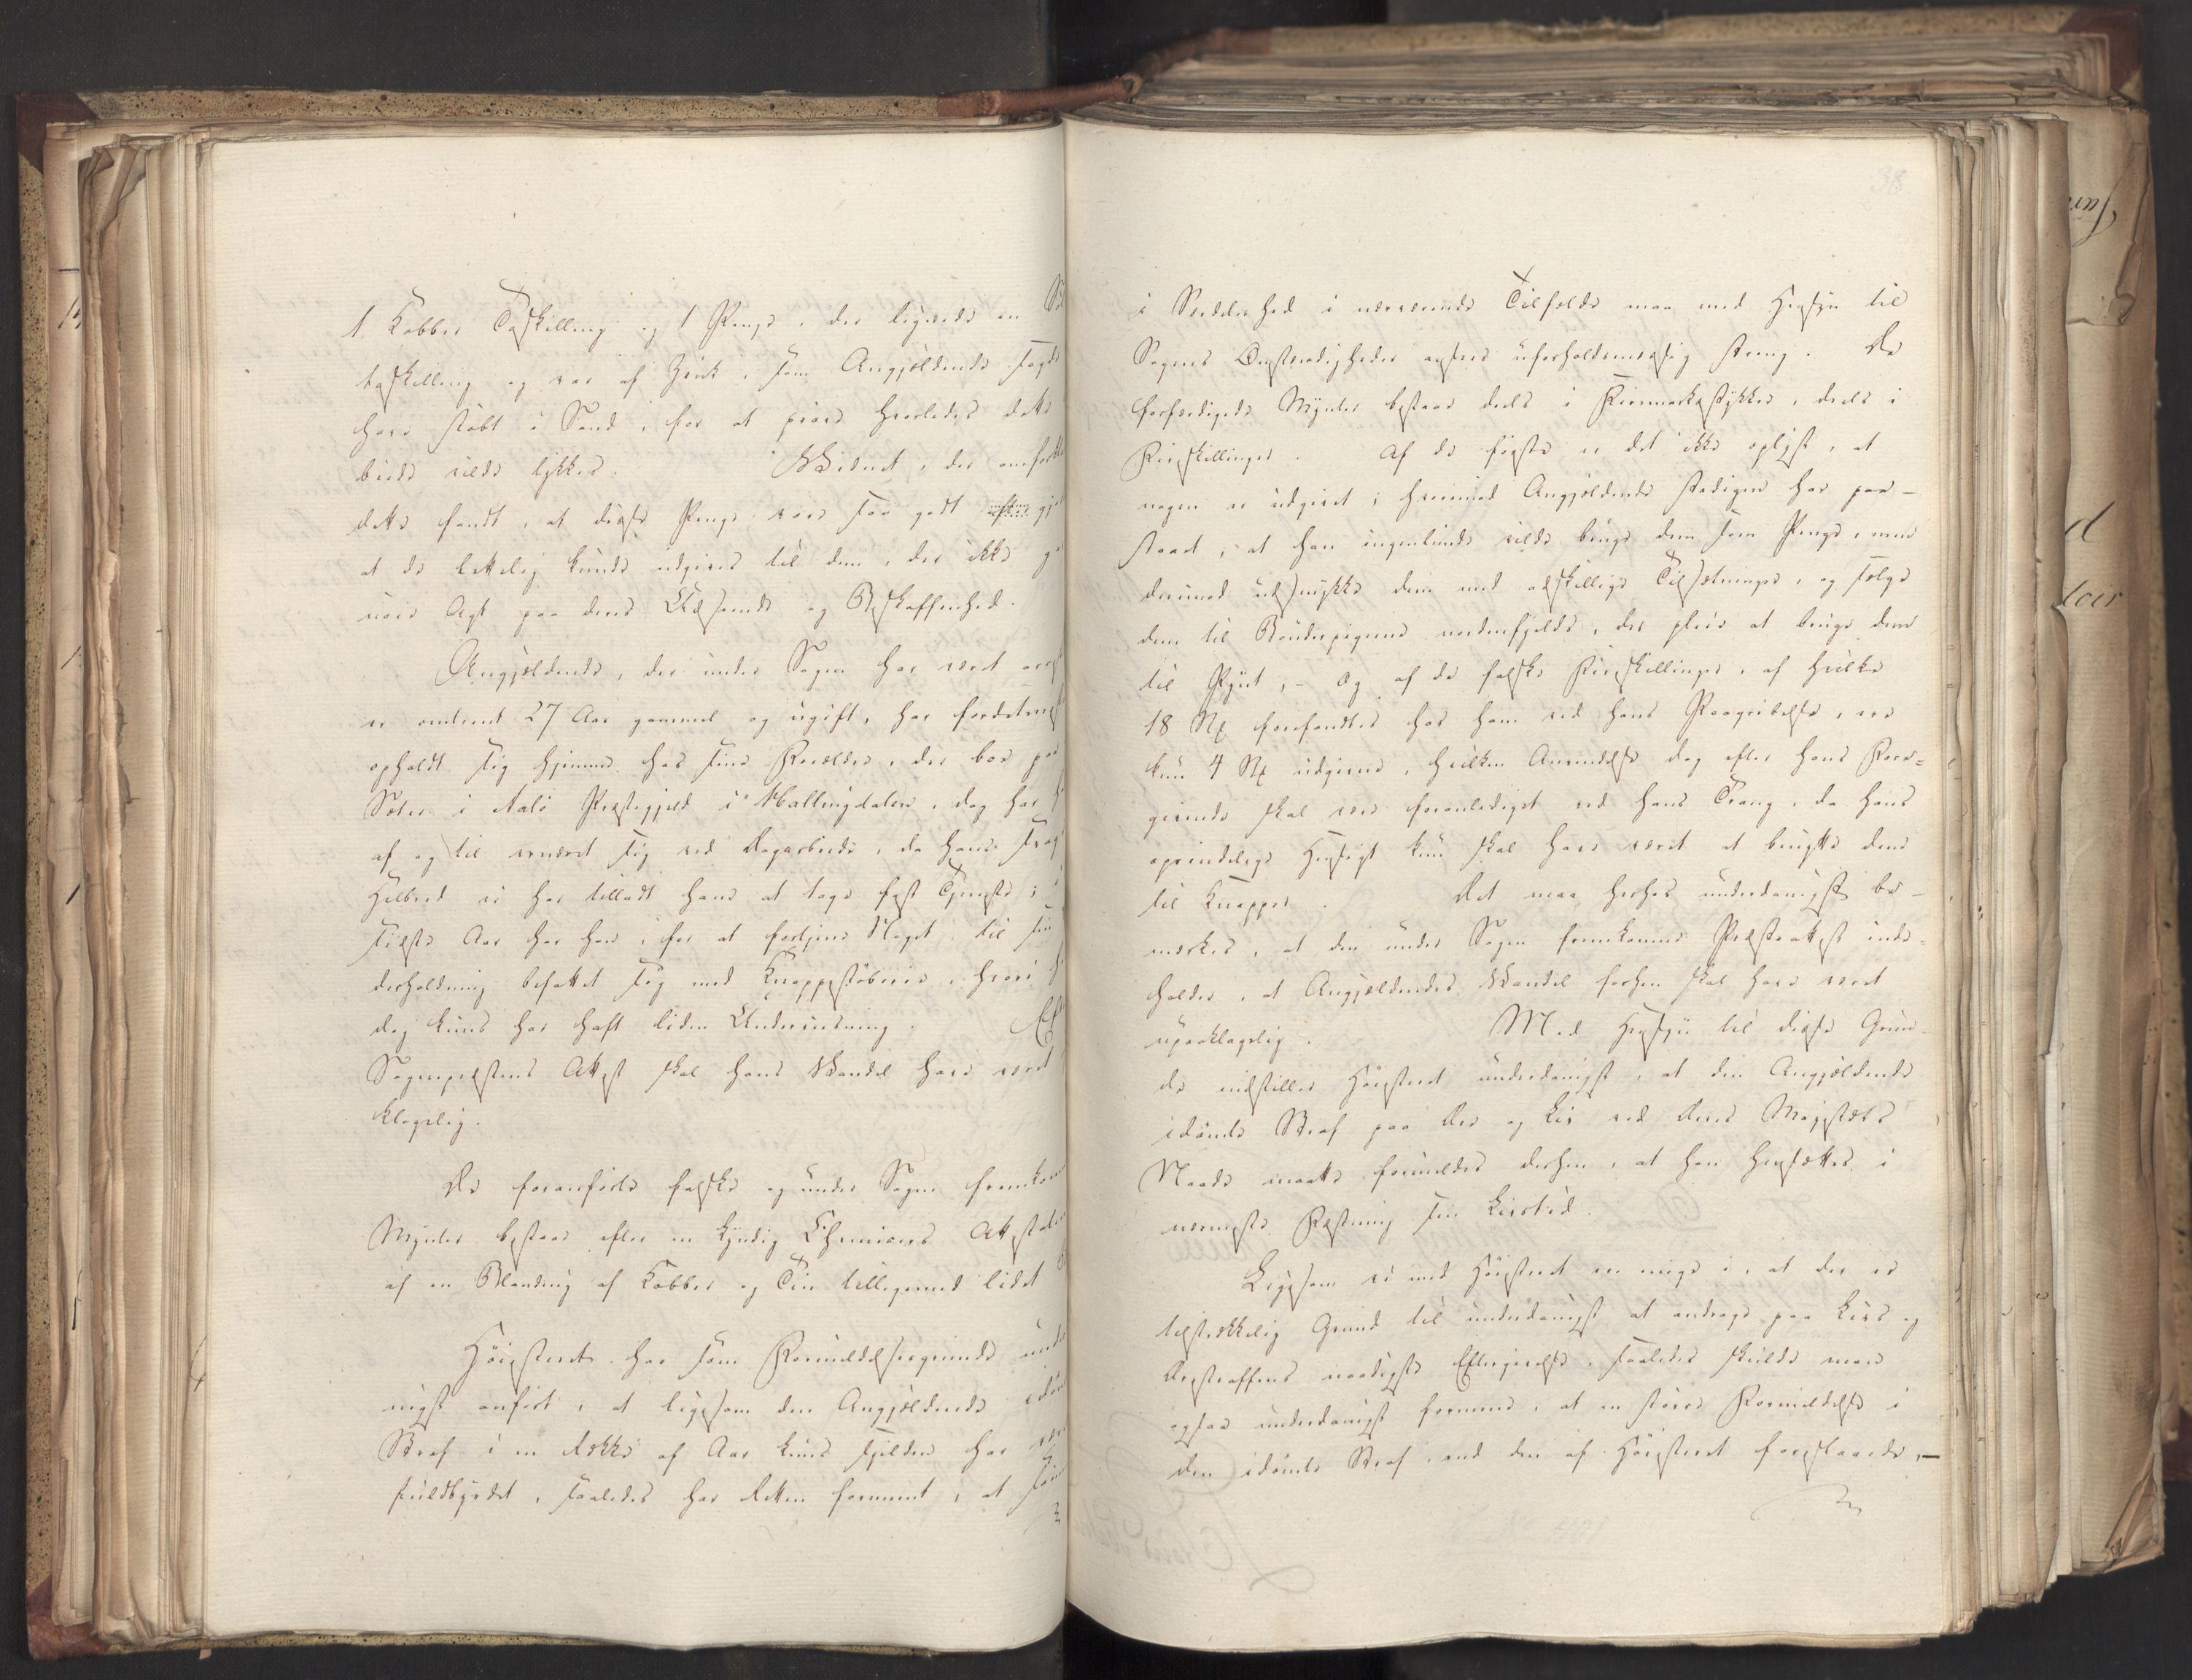 1 Kobber Toskilling og 1 Penge, der lignede en
toskilling og var af Zink, som Angjældende sagde
have støbt i Sand, for at prøve hvorledes dette
bedst vilde lykkes. Videnet, der omfor
dette fandt, at disse Penge vare saa godt eftergjo
at de lettelig kunde udgives til dem, der ikke
nøie Agt paa deres Udseende og Beskaffenhed.
Angjældende, der under Sagen har været arrest
er omtrent 27 Aar gammel og ugift, har fordetmest
opholdt sig hjemme hos sine Forældre, der boe paa
Sæter i Aals Præstegjeld i Hallingdalen, dog har
af og til ernæret sig ved Dagarbeide, da hans svag
Helbred ei har tilladt ham at tage fast Tjeneste; i
sidste Aar har han, for at fortjene Noget til sin
derholdning befattet sig med Knappestøberie, hvori
dog kuns har haft liden Underviisning. Eft
Sognepræstens Attest skal hans Vandel have været
klagelig.
De foranførte falske og under Sagen fremkom
Mynter bestaae efter en kyndig Chemicers Attestation
af en Blanding af Kobber og Tin tilligemed lidet
Høiesteret har som Formildelsesgrunde und
nigst anført, at ligesom den Angjældende idøm
Straf i en Række af Aar kuns sjelden har vær
fuldbyrdet, saaledes har Retten formeent, at
318
i Særdeleshed i nærværende Tilfælde maa med Hensyn til
Sagens Omstændigheder ansees uforholdsmæssig streng. De
forfærdigede Mynter bestaae deels i Fiiremarkstykker, deels i
Fireskillinger. Af de første er det ikke oplyst, at
nogen er udgivet; hvorimod Angjældende stadigen har paa-
staaet, at han ingenlunde vilde bruge dem som Penge, men
derimod udsmykke dem med adskillige Tilsætninger, og sælge
dem til Bønderpigerne nordenfjelds, der pleie at bruge dem
til Pynt, - og af de falske Fireskillinger, af hvilke
18 St forefandtes hos ham ved hans Paagribelse, ere
kun 4 St udgivne, hvilken Anvendelse dog efter hans Fore-
givende skal være foranlediget ved hans Trang, da hans
oprindelige Hensigt kun skal have været at benytte dem
til Knapper. Det maa herhos underdanigst be-
mærkes, at den under Sagen fremkomne Præsteattest inde-
holder, at Angjældendes Vandel forhen skal have været
upaaklagelig. Med Hensyn til disse Grun-
de indstiller Høiesteret underdanigst, at den Angjældende
idømte Straf paa Ære og Liv ved Deres Majestæts
Naade maatte formildes derhen, at han hensættes i
nærmeste Fæstning sin Livstid.
Ligesom vi med Høiesteret ere enige i, at der er
tilstrækkelig Grund til underdanigst at andrage paa Livs og
Æresstraffens naadigste Eftergivelse, saaledes skulde man
ogsaa underdanigst formene, at en større Formildelse i
den idømte Straf, end den af Høiesteret foreslaaede, -